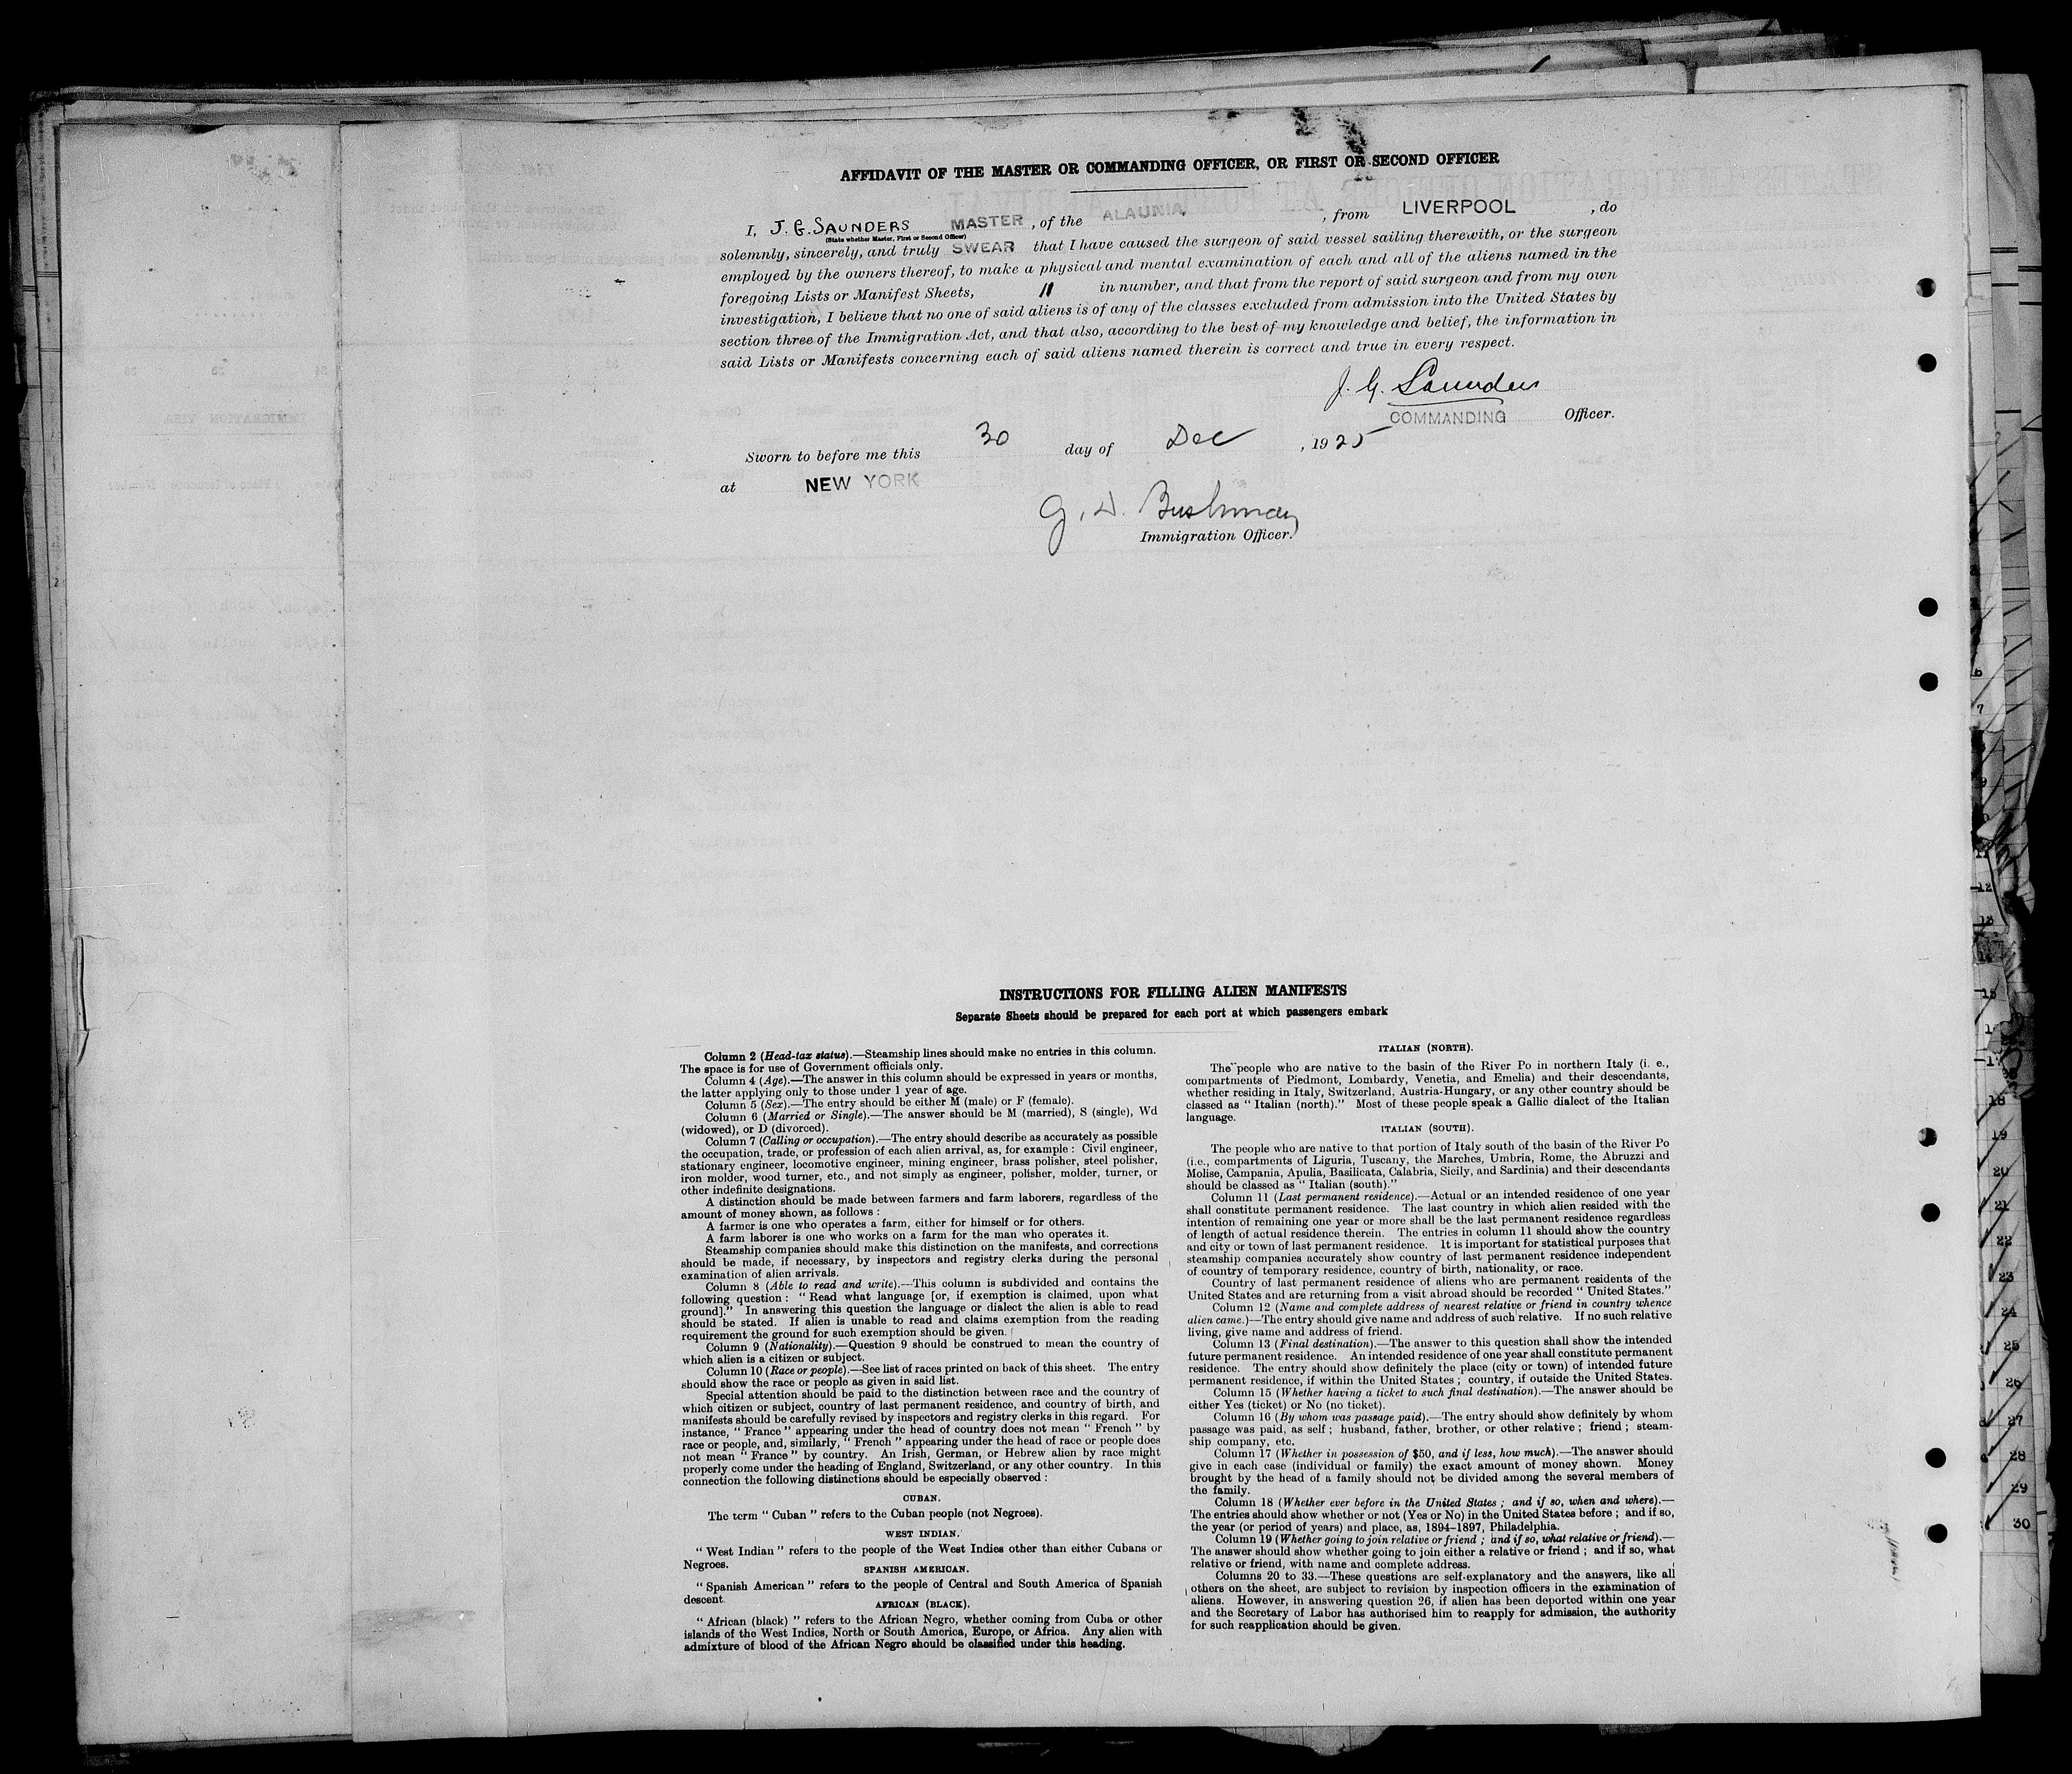 AFFIDAVIT OF THE MASTER OR COMMANDING OFFICER, OR FIRST OR SECOND OFFICER
I, J. G. SAUNDERS MASTER, of the ALAUNIA, from LIVERPOOL, do
(State whether Master, First or Second Officer)
solemnly, sincerely, and truly SWEAR that I have caused the surgeon of said vessel sailing therewith, or the surgeon
employed by the owners thereof, to make a physical and mental examination of each and all of the aliens named in the
foregoing Lists or Manifest Sheets, 11 in number, and that from the report of said surgeon and from my own
investigation, I believe that no one of said aliens is of any of the classes excluded from admission into the United States by
section three of the Immigration Act, and that also, according to the best of my knowledge and belief, the information in
said Lists or Manifests concerning each of said aliens named therein is correct and true in every respect.
J. G. Saunders
COMMANDING Officer.
Sworn to before me this 30 day of Dec, 1925
at NEW YORK
G. D. Bushman
Immigration Officer.
INSTRUCTIONS FOR FILLING ALIEN MANIFESTS
Separate Sheets should be prepared for each port at which passengers embark
Column 2 (Head-tax status).—Steamship lines should make no entries in this column.
The space is for use of Government officials only.
Column 4 (Age).—The answer in this column should be expressed in years or months,
the latter applying only to those under 1 year of age.
Column 5 (Sex).—The entry should be either M (male) or F (female).
Column 6 (Married or Single).—The answer should be M (married), S (single), Wd
(widowed), or D (divorced).
Column 7 (Calling or occupation).—The entry should describe as accurately as possible
the occupation, trade, or profession of each alien arrival, as, for example : Civil engineer,
stationary engineer, locomotive engineer, mining engineer, brass polisher, steel polisher,
iron molder, wood turner, etc., and not simply as engineer, polisher, molder, turner, or
other indefinite designations.
A distinction should be made between farmers and farm laborers, regardless of the
amount of money shown, as follows :
A farmer is one who operates a farm, either for himself or for others.
A farm laborer is one who works on a farm for the man who operates it.
Steamship companies should make this distinction on the manifests, and corrections
should be made, if necessary, by inspectors and registry clerks during the personal
examination of alien arrivals.
Column 8 (Able to read and write).—This column is subdivided and contains the
following question : " Read what language [or, if exemption is claimed, upon what
ground]." In answering this question the language or dialect the alien is able to read
should be stated. If alien is unable to read and claims exemption from the reading
requirement the ground for such exemption should be given.
Column 9 (Nationality).—Question 9 should be construed to mean the country of
which alien is a citizen or subject.
Column 10 (Race or people).—See list of races printed on back of this sheet. The entry
should show the race or people as given in said list.
Special attention should be paid to the distinction between race and the country of
which citizen or subject, country of last permanent residence, and country of birth, and
manifests should be carefully revised by inspectors and registry clerks in this regard. For
instance, " France " appearing under the head of country does not mean " French " by
race or people, and, similarly, " French " appearing under the head of race or people does
not mean " France " by country. An Irish, German, or Hebrew alien by race might
properly come under the heading of England, Switzerland, or any other country. In this
connection the following distinctions should be especially observed :
CUBAN.
The term " Cuban " refers to the Cuban people (not Negroes).
WEST INDIAN.
" West Indian " refers to the people of the West Indies other than either Cubans or
Negroes.
SPANISH AMERICAN.
" Spanish American " refers to the people of Central and South America of Spanish
descent.
AFRICAN (BLACK).
" African (black) " refers to the African Negro, whether coming from Cuba or other
islands of the West Indies, North or South America, Europe, or Africa. Any alien with
admixture of blood of the African Negro should be classified under this heading.
ITALIAN (NORTH).
The people who are native to the basin of the River Po in northern Italy (i. e.,
compartments of Piedmont, Lombardy, Venetia, and Emelia) and their descendants,
whether residing in Italy, Switzerland, Austria-Hungary, or any other country should be
classed as " Italian (north)." Most of these people speak a Gallic dialect of the Italian
language.
ITALIAN (SOUTH).
The people who are native to that portion of Italy south of the basin of the River Po
(i.e., compartments of Liguria, Tuscany, the Marches, Umbria, Rome, the Abruzzi and
Molise, Campania, Apulia, Basilicata, Calabria, Sicily, and Sardinia) and their descendants
should be classed as " Italian (south)."
Column 11 (Last permanent residence).—Actual or an intended residence of one year
shall constitute permanent residence. The last country in which alien resided with the
intention of remaining one year or more shall be the last permanent residence regardless
of length of actual residence therein. The entries in column 11 should show the country
and city or town of last permanent residence. It is important for statistical purposes that
steamship companies accurately show country of last permanent residence independent
of country of temporary residence, country of birth, nationality, or race.
Country of last permanent residence of aliens who are permanent residents of the
United States and are returning from a visit abroad should be recorded " United States."
Column 12 (Name and complete address of nearest relative or friend in country whence
alien came.)—The entry should give name and address of such relative. If no such relative
living, give name and address of friend.
Column 13 (Final destination).—The answer to this question shall show the intended
future permanent residence. An intended residence of one year shall constitute permanent
residence. The entry should show definitely the place (city or town) of intended future
permanent residence, if within the United States ; country, if outside the United States.
Column 15 (Whether having a ticket to such final destination).—The answer should be
either Yes (ticket) or No (no ticket).
Column 16 (By whom was passage paid).—The entry should show definitely by whom
passage was paid, as self ; husband, father, brother, or other relative ; friend ; steam-
ship company, etc.
Column 17 (Whether in possession of $50, and if less, how much).—The answer should
give in each case (individual or family) the exact amount of money shown. Money
brought by the head of a family should not be divided among the several members of
the family.
Column 18 (Whether ever before in the United States ; and if so, when and where).—
The entries should show whether or not (Yes or No) in the United States before ; and if so,
the year (or period of years) and place, as, 1894–1897, Philadelphia.
Column 19 (Whether going to join relative or friend ; and if so, what relative or friend).—
The answer should show whether going to join either a relative or friend ; and if so, what
relative or friend, with name and complete address.
Columns 20 to 33.—These questions are self-explanatory and the answers, like all
others on the sheet, are subject to revision by inspection officers in the examination of
aliens. However, in answering question 26, if alien has been deported within one year
and the Secretary of Labor has authorised him to reapply for admission, the authority
for such reapplication should be given.
6
7
9
12
15
18
19
20
21
22
23
24
25
26
27
28
29
30